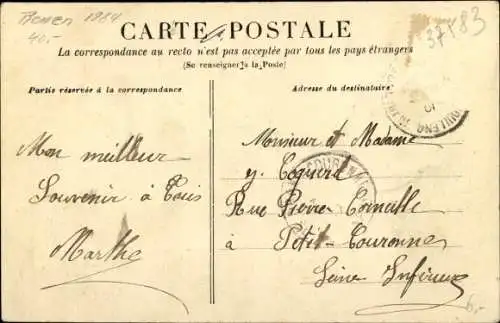 Bremen 1984
40.-
37183
CARTE POSTALE
La correspondance au recto n'est pas acceptée par tous les pays étrangers
(Se renseigner à la Poste)
Partie réservée à la correspondance
Adresse du destinataire
Mon meilleur
Souvenir à tous
Marthe
Monsieur et Madame
Rue Pierre Corneille
à Petit-Couronne
Seine Inférieure
6.-